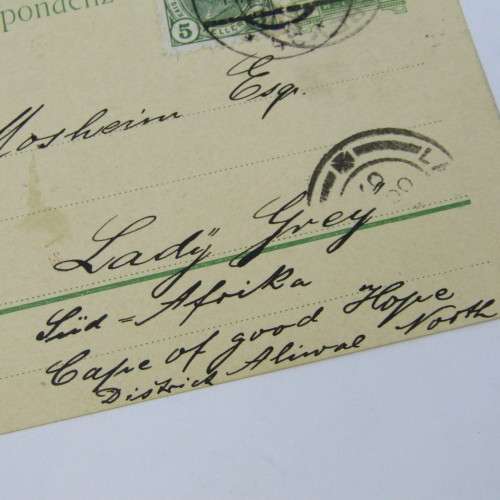 pondenz
5 HELLER
Mosheim Esq.
LA
Ladÿ Greÿ
Süd = Afrika
Cape of good Hope
District Aliwal North